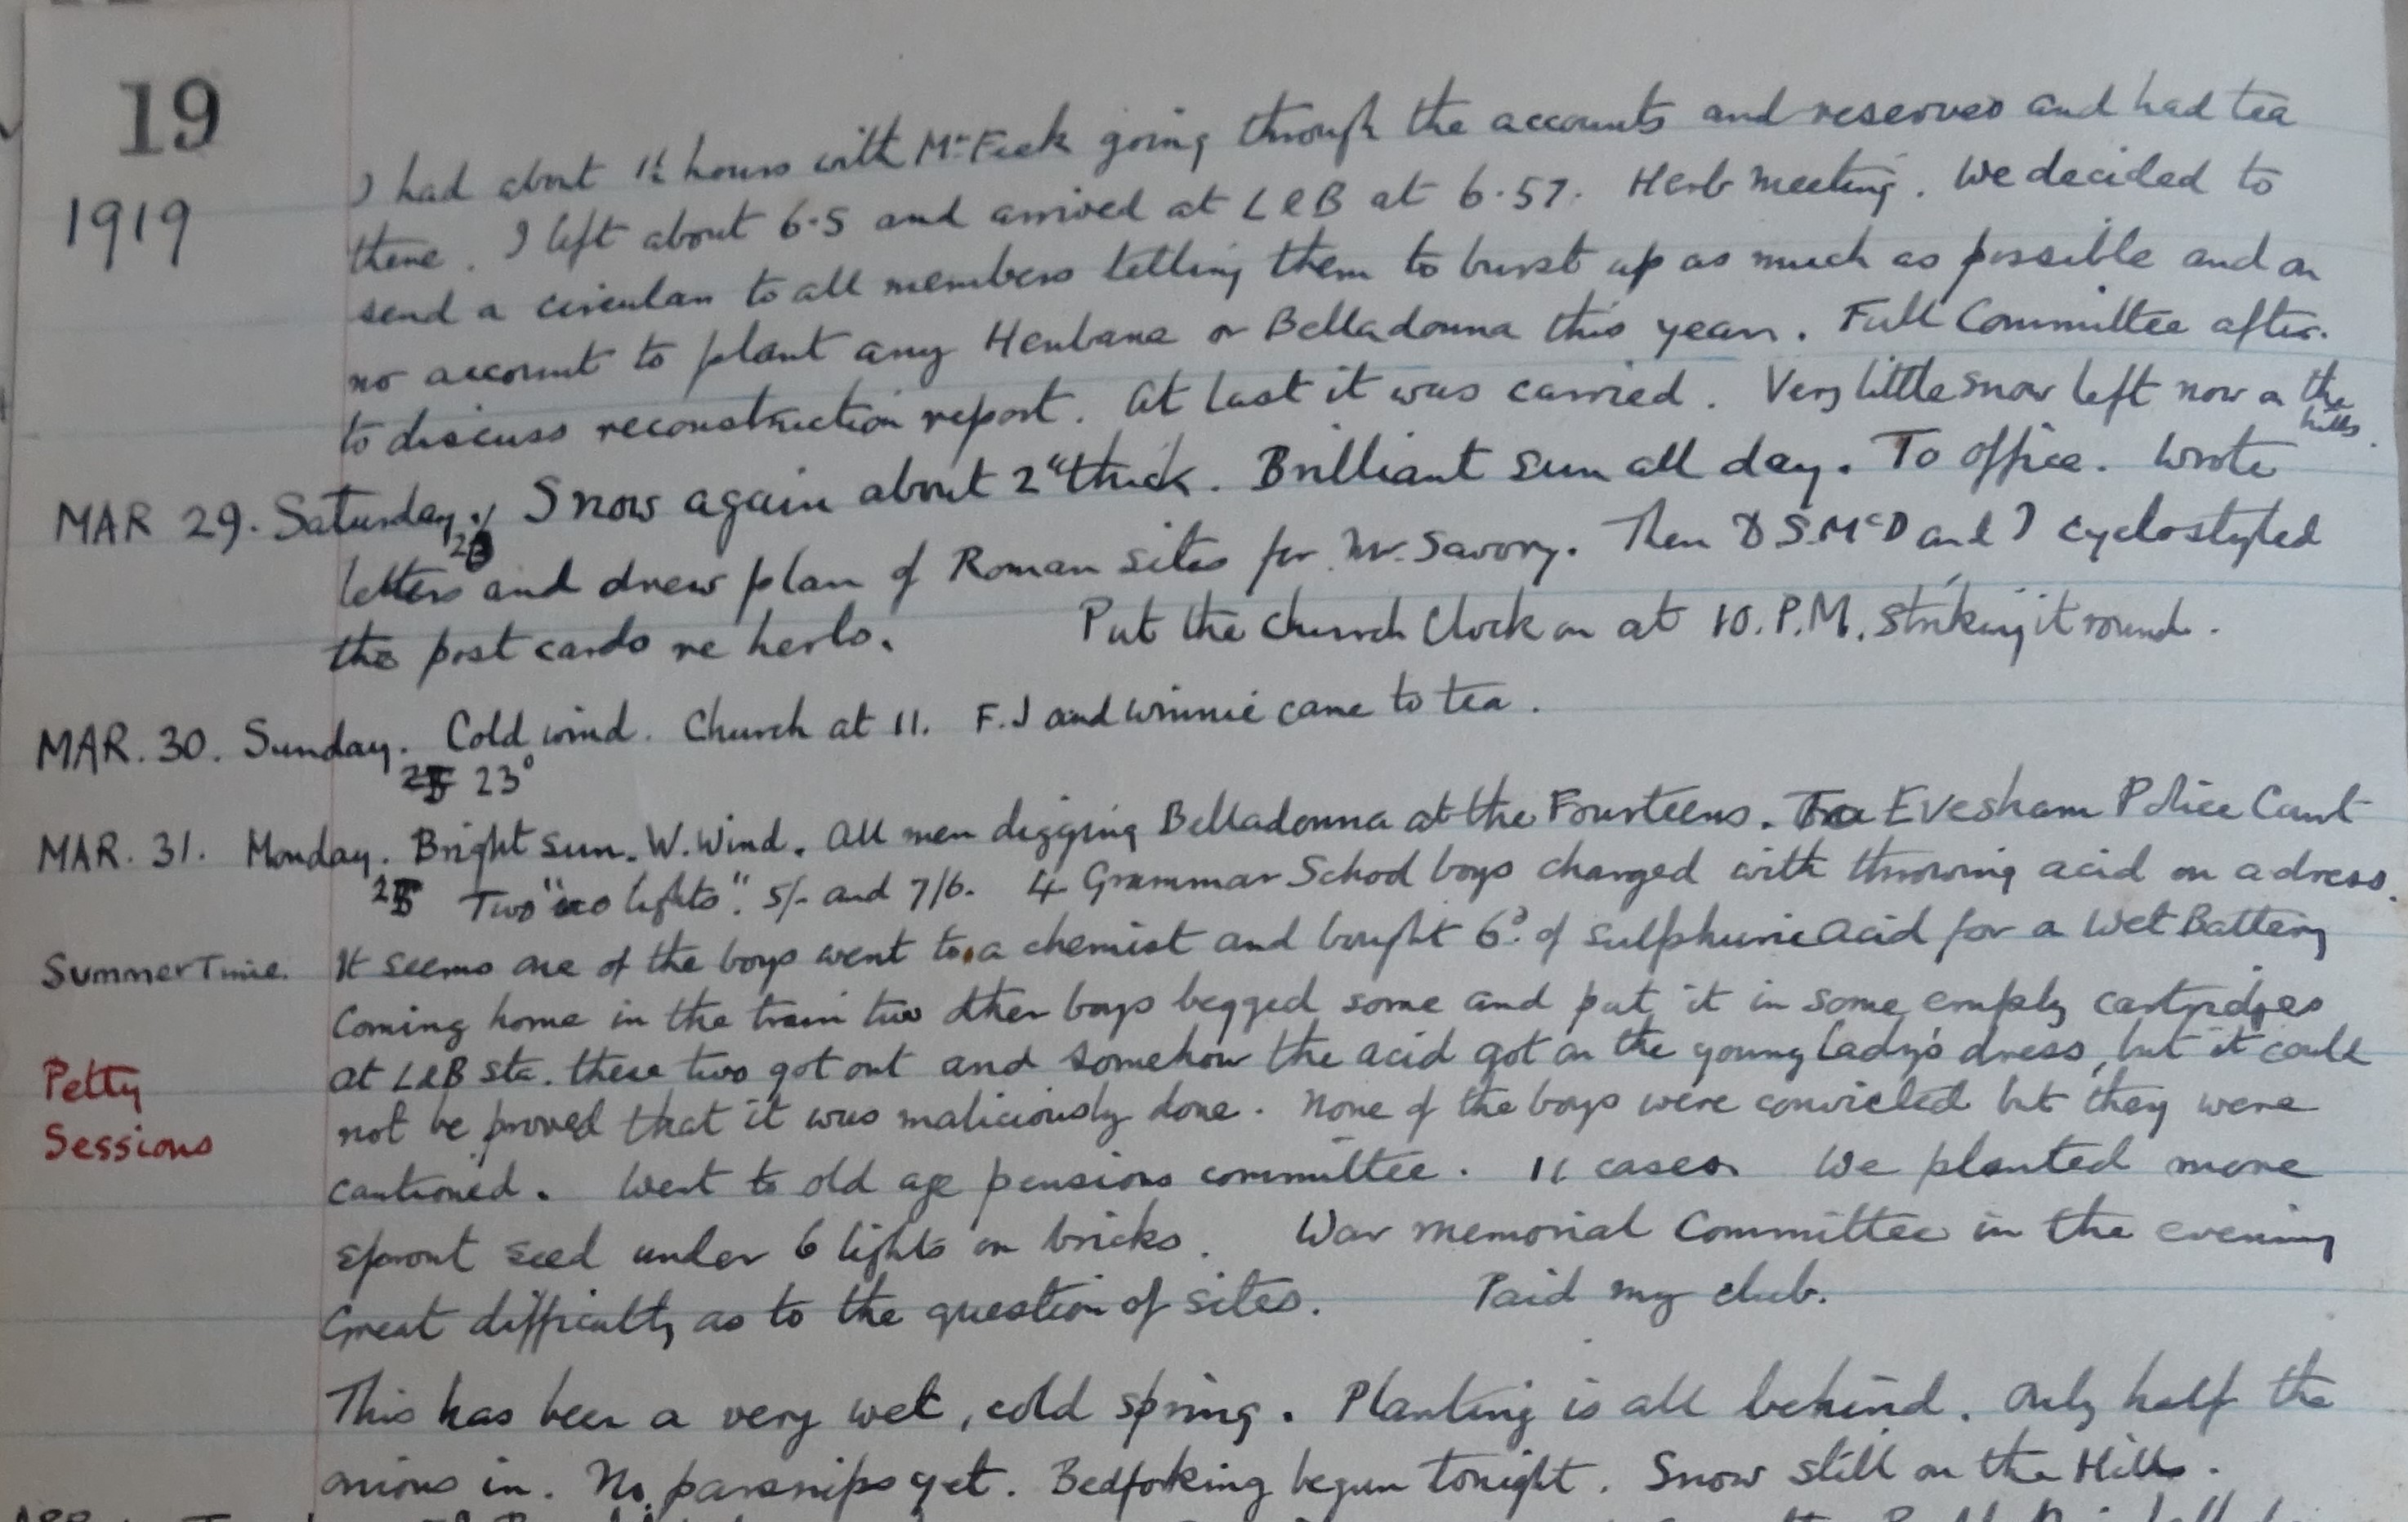 19
1919
I had about 1½ hours with Mr Feek going through the accounts and reserves and had tea
there. I left about 6.5 and arrived at L&B at 6.57. Herb meeting. We decided to
send a circular to all members telling them to burst up as much as possible and on
no account to plant any Henbane or Belladonna this year. Full Committee after.
to discuss reconstruction report. At last it was carried. Very little snow left now on the
hills.
MAR 29. Saturday. Snow again about 2" thick. Brilliant sun all day. To office. Wrote
letters and drew plan of Roman sites for Mr. Savory. Then D S. McD and I cyclostyled
the post cards re herbs. Put the church clock on at 10. P.M. striking it round.
MAR. 30. Sunday. Cold wind. Church at 11. F.J and Winnie came to tea.
23°
MAR. 31. Monday. Bright sun. W. Wind. All men digging Belladonna at the Fourteens. To Evesham Police Court
Two "no lights". 5/- and 7/6. 4 Grammar School boys charged with throwing acid on a dress.
Summer Time. It seems one of the boys went to a chemist and bought 6d of sulphuric acid for a Wet Battery
Coming home in the train two other boys begged some and put it in some empty cartridges
at L&B sta. these two got out and somehow the acid got on the young lady's dress, but it could
Petty
not be proved that it was maliciously done. None of the boys were convicted but they were
Sessions
cautioned. Went to old age pensions committee. 11 cases. We planted more
sprout seed under 6 lights on bricks. War memorial Committee in the evening
Great difficulty as to the question of sites. Paid my club.
This has been a very wet, cold spring. Planting is all behind. Only half the
onions in. No parsnips yet. Bedforking begun tonight. Snow still on the Hills.